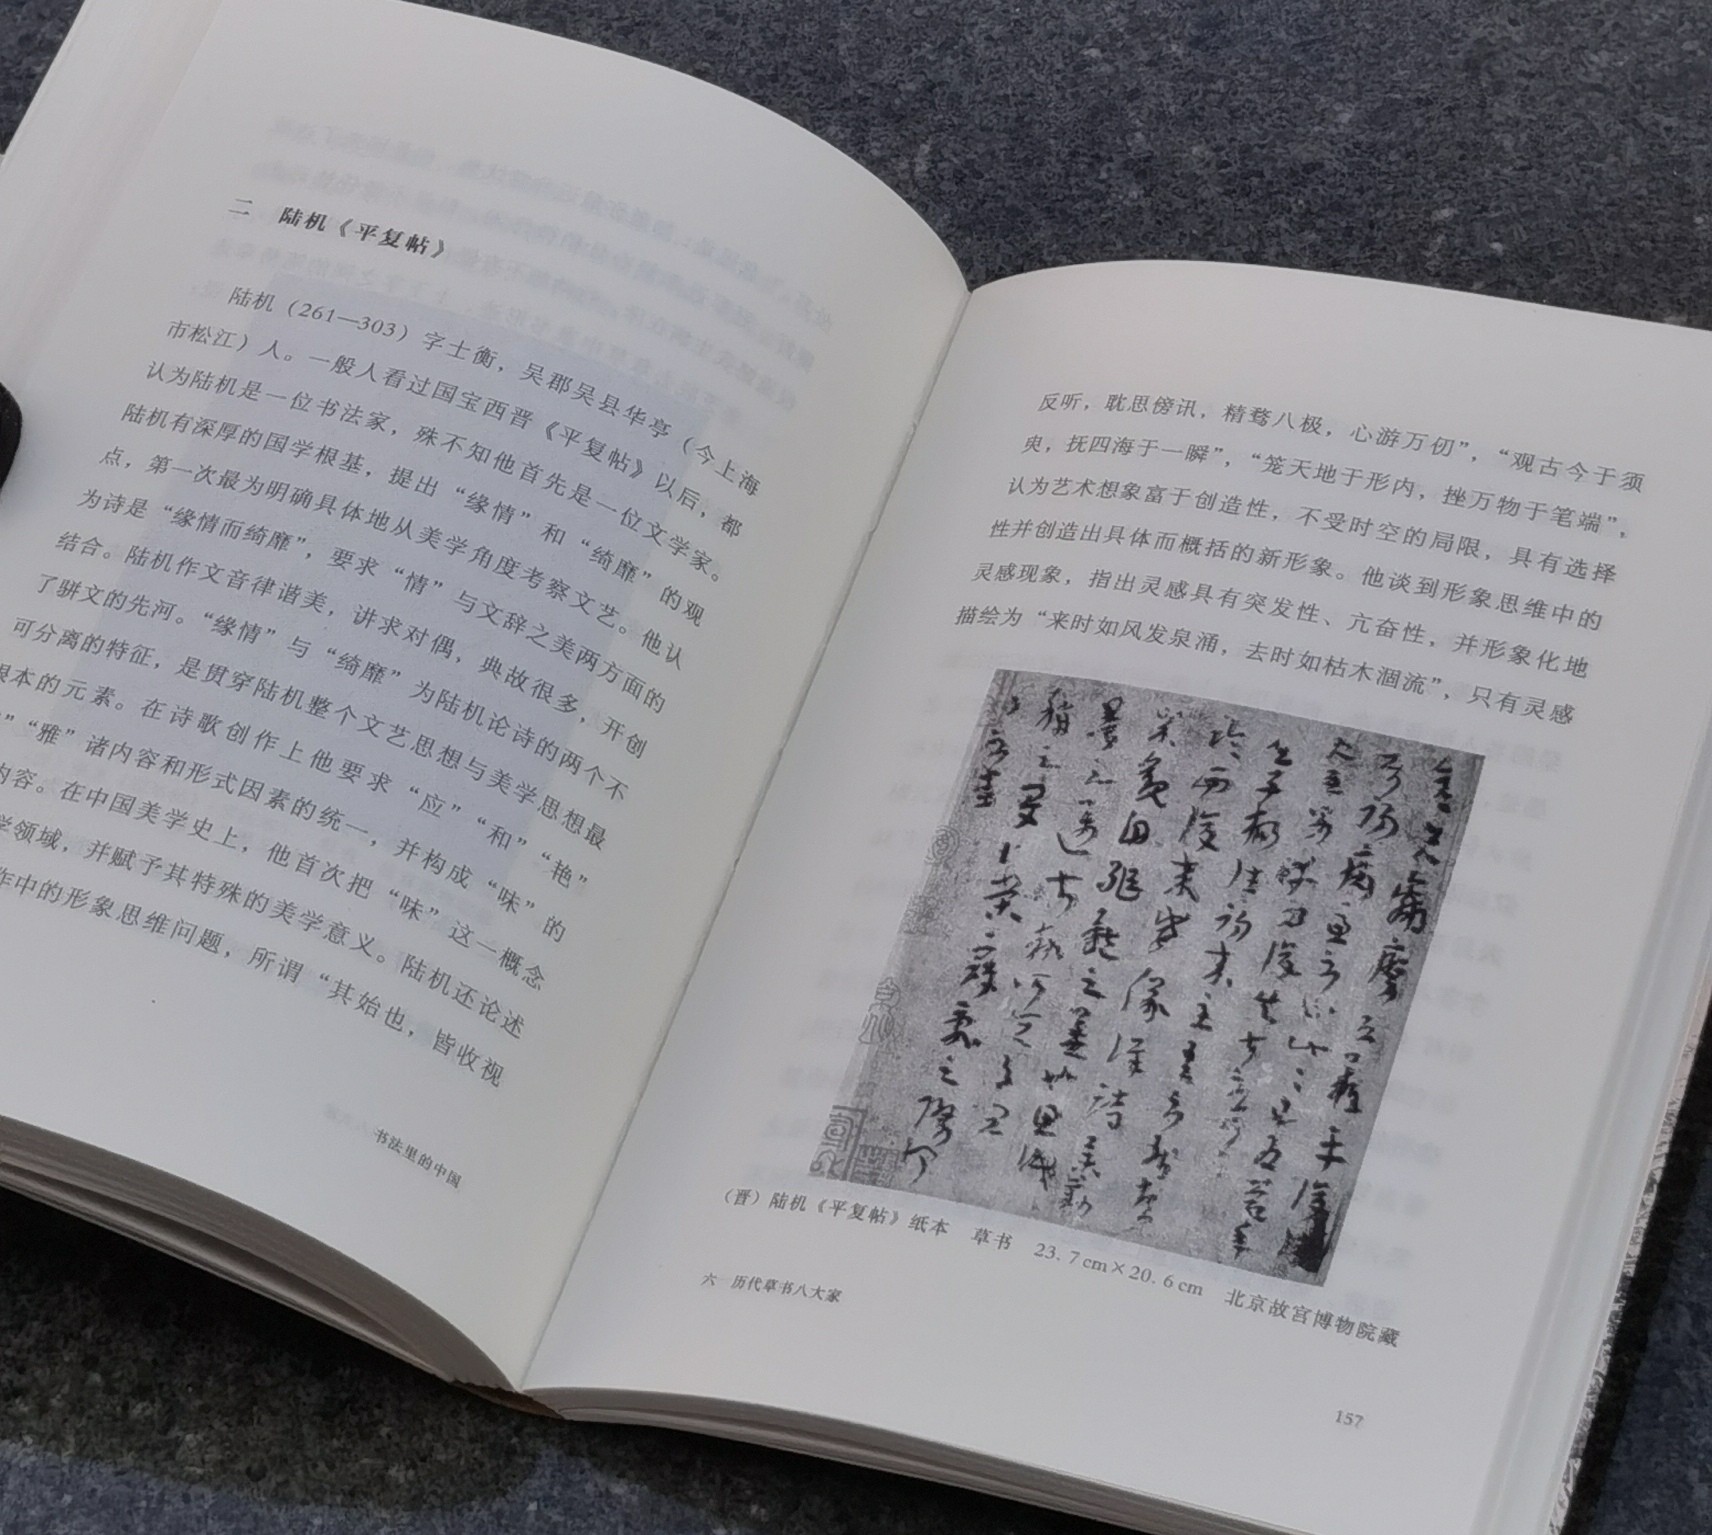 二 陆机《平复帖》
陆机（261—303）字士衡，吴郡吴县华亭（今上海
市松江）人。一般人看过国宝西晋《平复帖》以后，都
认为陆机是一位书法家，殊不知他首先是一位文学家。
陆机有深厚的国学根基，提出“缘情”和“绮靡”的观
点，第一次最为明确具体地从美学角度考察文艺。他认
为诗是“缘情而绮靡”，要求“情”与文辞之美两方面的
结合。陆机作文音律谐美，讲求对偶，典故很多，开创
了骈文的先河。“缘情”与“绮靡”为陆机论诗的两个不
可分离的特征，是贯穿陆机整个文艺思想与美学思想最
根本的元素。在诗歌创作上他要求“应”“和”“艳”
”“雅”诸内容和形式因素的统一，并构成“味”的
内容。在中国美学史上，他首次把“味”这一概念
学领域，并赋予其特殊的美学意义。陆机还论述
作中的形象思维问题，所谓“其始也，皆收视
书法里的中国
反听，耽思傍讯，精骛八极，心游万仞”，“观古今于须
臾，抚四海于一瞬”，“笼天地于形内，挫万物于笔端”，
认为艺术想象富于创造性，不受时空的局限，具有选择
性并创造出具体而概括的新形象。他谈到形象思维中的
灵感现象，指出灵感具有突发性、亢奋性，并形象化地
描绘为“来时如风发泉涌，去时如枯木涸流”，只有灵感
（晋）陆机《平复帖》纸本 草书 23.7cm×20.6cm 北京故宫博物院藏
六 历代草书八大家
157